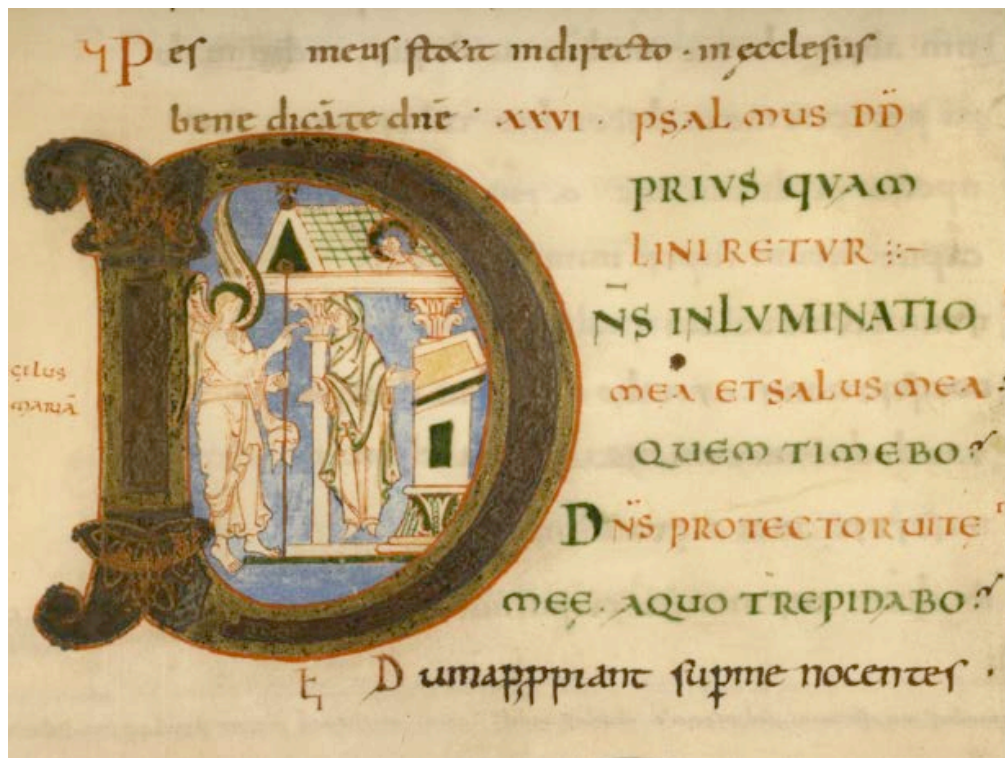 Pes meus stetit indirecto · inęcclesiis
bene dicāte dnē · XXVI PSALMUS DD̄
PRIVS QVAM
LINIRETVR
DN̄S INLVMINATIO
MEA ETSALUSMEA
QUEM TIMEBO?
DN̄S PROTECTOR UITE
MEE · AQUO TREPIDABO?
Dumapp̱ropiant sup̱me nocentes ·
çilus
mariā